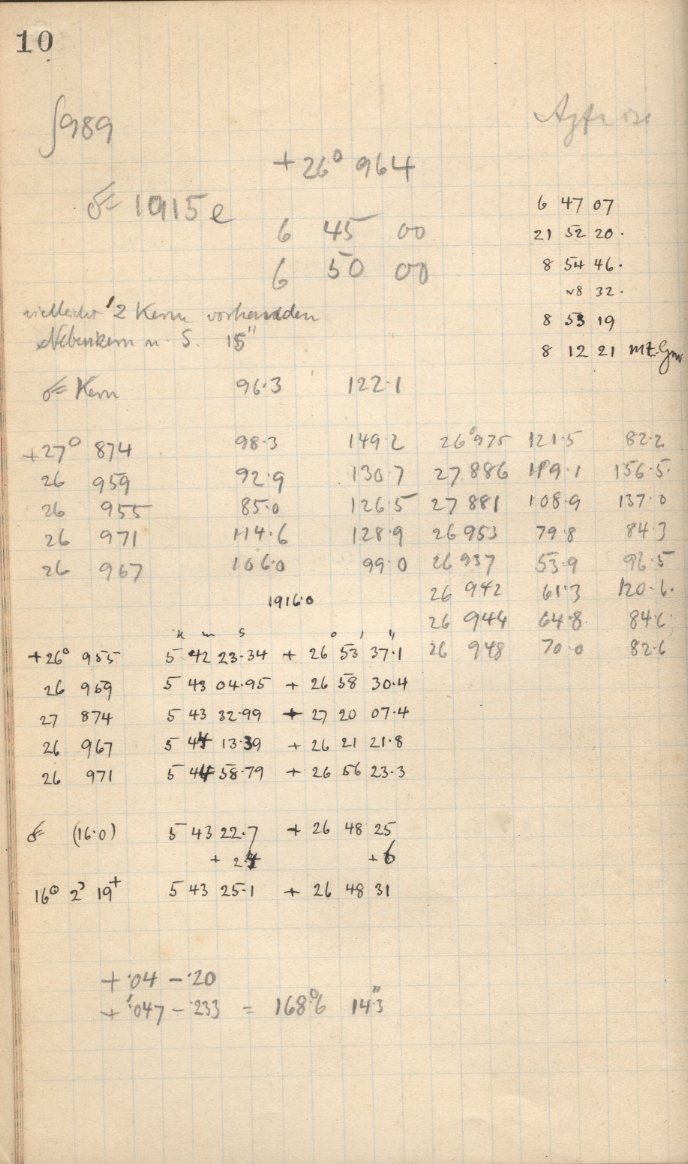 10
989
+26° 964
☄ 1915e
6 45 00
6 50 00
6 47 07
21 52 20.
8 54 46.
8 32.
8 53 19
8 12 21
vielleicht 2 Kerne vorhanden
Nebenkern n. S. 15"
☄ Kern 96.3 122.1
+27° 874 98.3 149.2
26 959 92.9 130.7
26 955 85.0 126.5
26 971 114.6 128.9
26 967 106.0 99.0
26° 975 121.5 82.2
27 886 119.1 156.5.
27 881 108.9 137.0
26 953 79.8 84.3
26 937 53.9 96.5
26 942 61.3 120.6.
26 944 64.8 84.6
26 948 70.0 82.6
1916.0
h m s ° ' "
+26° 955 5 42 23.34 + 26 53 37.1
26 959 5 43 04.95 + 26 58 30.4
27 874 5 43 32.99 + 27 20 07.4
26 967 5 44 13.39 + 26 21 21.8
26 971 5 44 58.79 + 26 56 23.3
☄ (16.0) 5 43 22.7 + 26 48 25
+ 2.4 + 6
16° 2' 19+ 5 43 25.1 + 26 48 31
+ .04 - .20
+ .047 - .233 = 168.°6 14".3